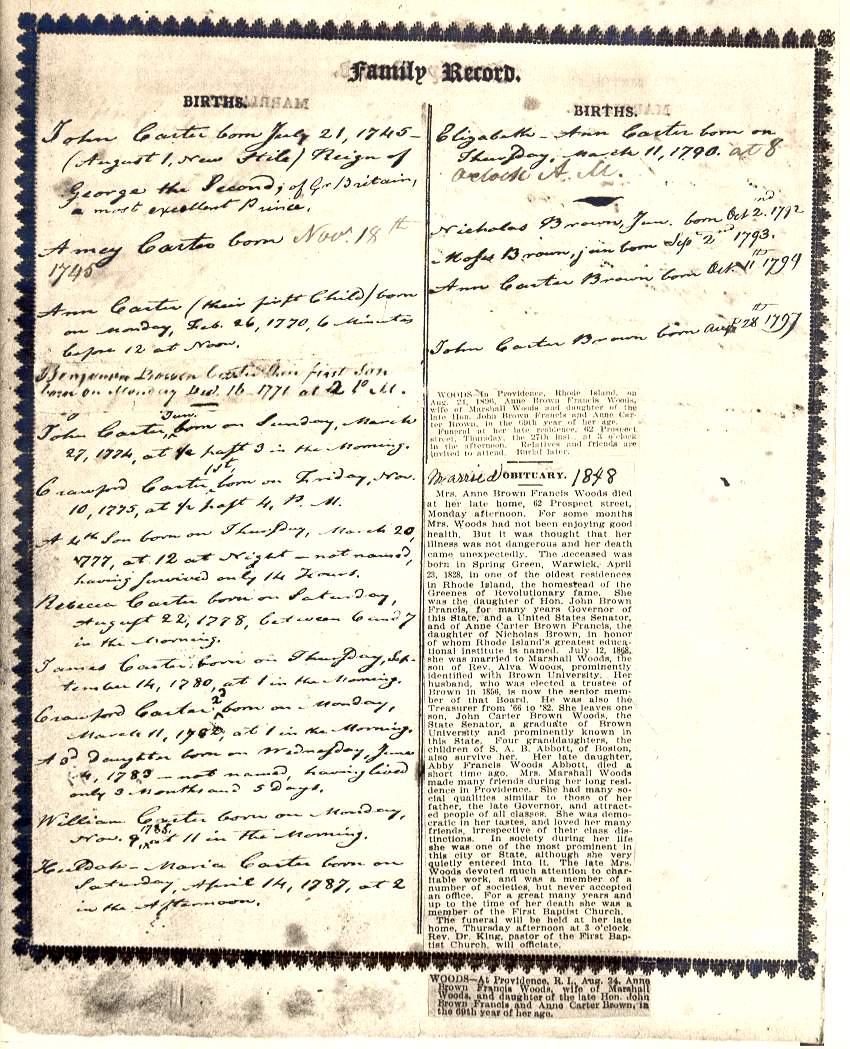 Family Record.
BIRTHS.
John Carter born July 21, 1745 –
(August 1, New Stile) Reign of
George the Second, of Gr. Britain,
a most excellent Prince.
Amey Carter born Nov. 18th
1745
Ann Carter (their first Child) born
on Monday, Feb. 26, 1770, 6 Minutes
before 12 at Noon.
Benjamin Bowen Carter first Son
born on Monday Dec. 16 - 1771 at 2 P. M.
John Carter, Jun. born on Sunday, March
27, 1774, at ½ past 3 in the Morning.
Crawford Carter 1st, born on Friday, Nov.
10, 1775, at ½ past 4, P. M.
A 4th Son born on Thursday, March 20,
1777, at 12 at Night – not named,
having survived only 14 Hours.
Rebecca Carter born on Saturday,
August 22, 1778, between 6 and 7
in the Morning.
James Carter born on Thursday, Sep-
tember 14, 1780, at 1 in the Morning.
Crawford Carter 2d born on Monday,
March 11, 1782, at 1 in the Morning.
A 3d Daughter born on Wednesday, June
4, 1783 – not named, having lived
only 3 Months and 5 Days.
William Carter born on Monday,
Nov. 9, 1785, at 11 in the Morning.
Huldah - Maria Carter born on
Saturday, April 14, 1787, at 2
in the Afternoon.
BIRTHS.
Elizabeth - Ann Carter born on
Thursday, March 11, 1790. at 8
oclock A. M.
Nicholas Brown, Jun. born Oct 2nd. 1792
Moses Brown, jun born Sep 2nd 1793.
Ann Carter Brown born Oct. 11th 1794
John Carter Brown born Augt 28th 1797
WOODS—In Providence, Rhode Island, on
Aug. 24, 1896, Anne Brown Francis Woods,
wife of Marshall Woods and daughter of the
late Hon. John Brown Francis and Anne Car-
ter Brown, in the 69th year of her age.
Funeral at her late residence, 62 Prospect
street, Thursday, the 27th inst., at 3 o'clock
in the afternoon. Relatives and friends are
invited to attend. Burial later.
Married OBITUARY. 1848
Mrs. Anne Brown Francis Woods died
at her late home, 62 Prospect street,
Monday afternoon. For some months
Mrs. Woods had not been enjoying good
health. But it was thought that her
illness was not dangerous and her death
came unexpectedly. The deceased was
born in Spring Green, Warwick, April
23, 1828, in one of the oldest residences
in Rhode Island, the homestead of the
Greenes of Revolutionary fame. She
was the daughter of Hon. John Brown
Francis, for many years Governor of
this State, and a United States Senator,
and of Anne Carter Brown Francis, the
daughter of Nicholas Brown, in honor
of whom Rhode Island's greatest educa-
tional institute is named. July 12, 1868,
she was married to Marshall Woods, the
son of Rev. Alva Woods, prominently
identified with Brown University. Her
husband, who was elected a trustee of
Brown in 1856, is now the senior mem-
ber of that Board. He was also the
Treasurer from '66 to '82. She leaves one
son, John Carter Brown Woods, the
State Senator, a graduate of Brown
University and prominently known in
this State. Four granddaughters, the
children of S. A. B. Abbott, of Boston,
also survive her. Her late daughter,
Abby Francis Woods Abbott, died a
short time ago. Mrs. Marshall Woods
made many friends during her long resi-
dence in Providence. She had many so-
cial qualities similar to those of her
father, the late Governor, and attract-
ed people of all classes. She was demo-
cratic in her tastes, and loved her many
friends, irrespective of their class dis-
tinctions. In society during her life
she was one of the most prominent in
this city or State, although she very
quietly entered into it. The late Mrs.
Woods devoted much attention to char-
itable work, and was a member of a
number of societies, but never accepted
an office. For a great many years and
up to the time of her death she was a
member of the First Baptist Church.
The funeral will be held at her late
home, Thursday afternoon at 3 o'clock.
Rev. Dr. King, pastor of the First Bap-
tist Church, will officiate.
WOODS—At Providence, R. I., Aug. 24, Anne
Brown Francis Woods, wife of Marshall
Woods, and daughter of the late Hon. John
Brown Francis and Anne Carter Brown, in
the 69th year of her age.